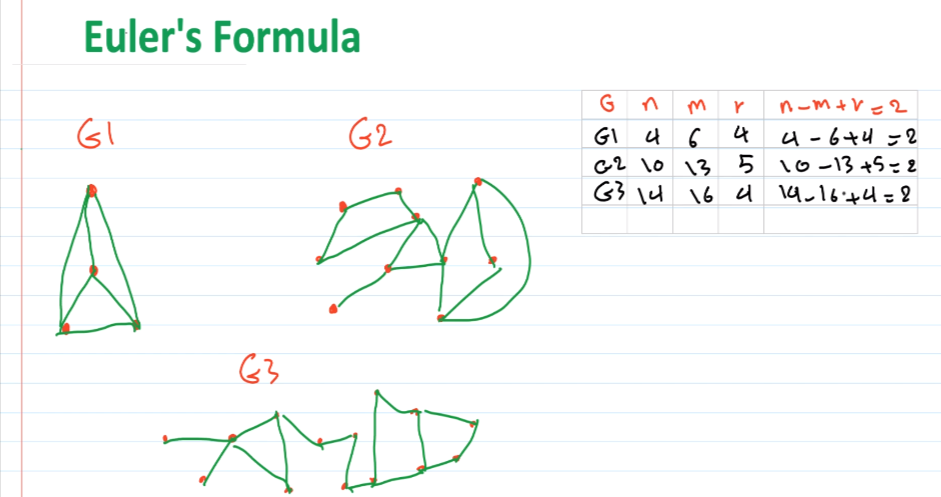 Euler's Formula
G1
G2
G n m r n-m+r=2
G1 4 6 4 4-6+4=2
G2 10 13 5 10-13+5=2
G3 14 16 4 14-16+4=2
G3